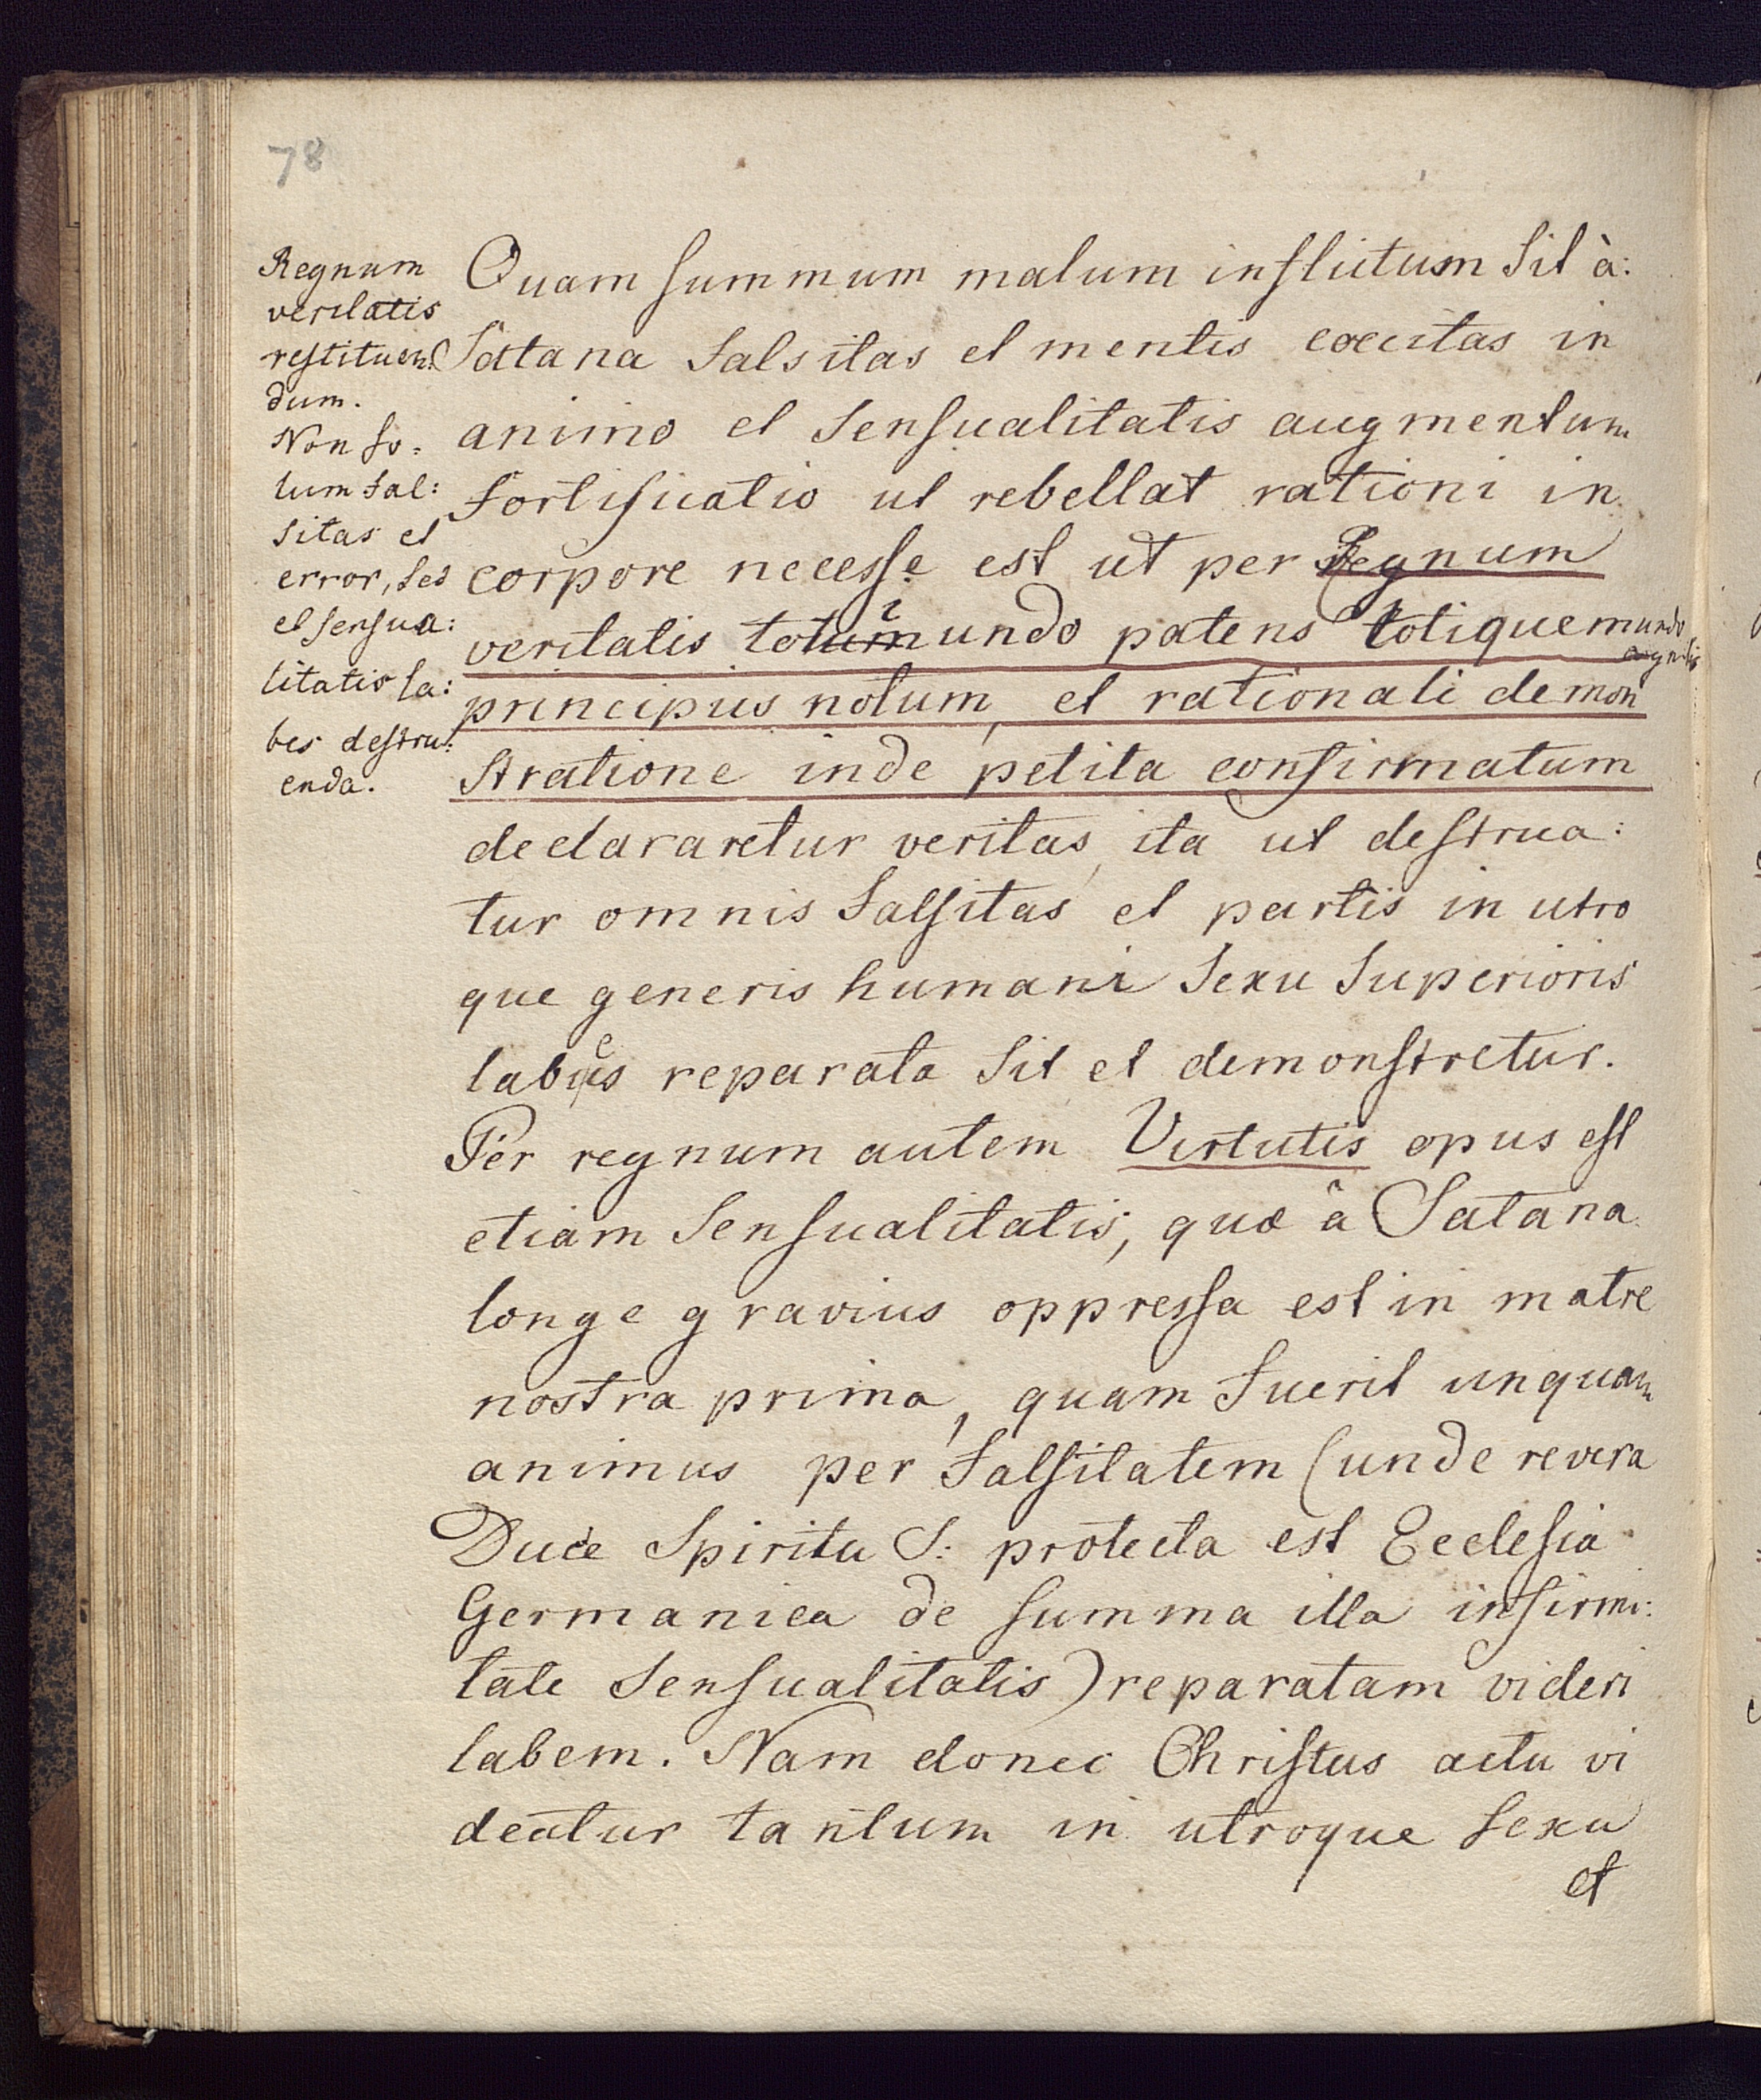 78
Regnum
veritatis
restituen:
dum.
Non so:
lum fal:
sitas et
error, sed
et sensua:
litatis la:
bes destru:
enda.
Quam summum malum inflictum sit à:
Satana falsitas et mentis coecitas in
animo et sensualitatis augmentum
fortificatio ut rebellat rationi in
corpore necesse est ut per Regnum
veritatis toti mundo patens totique mundo
principiis notum, et rationali demon
stratione inde petita confirmatum
declararetur veritas, ita ut destrua:
tur omnis falsitas et partis in utro
que generis humani sexu superioris
labes reparata sit et demonstretur.
Per regnum autem Virtutis opus est
etiam sensualitatis, quæ à Satana
longe gravius oppressa est in matre
nostra prima, quam fuerit unquam
animus per falsitatem (unde revera
Duce Spiritu S: protecta est Ecclesia
Germanica de summa illa infirmi:
tate sensualitatis) reparatam videri
labem. Nam donec Christus actu vi
deatur tantum in utroque sexu
et